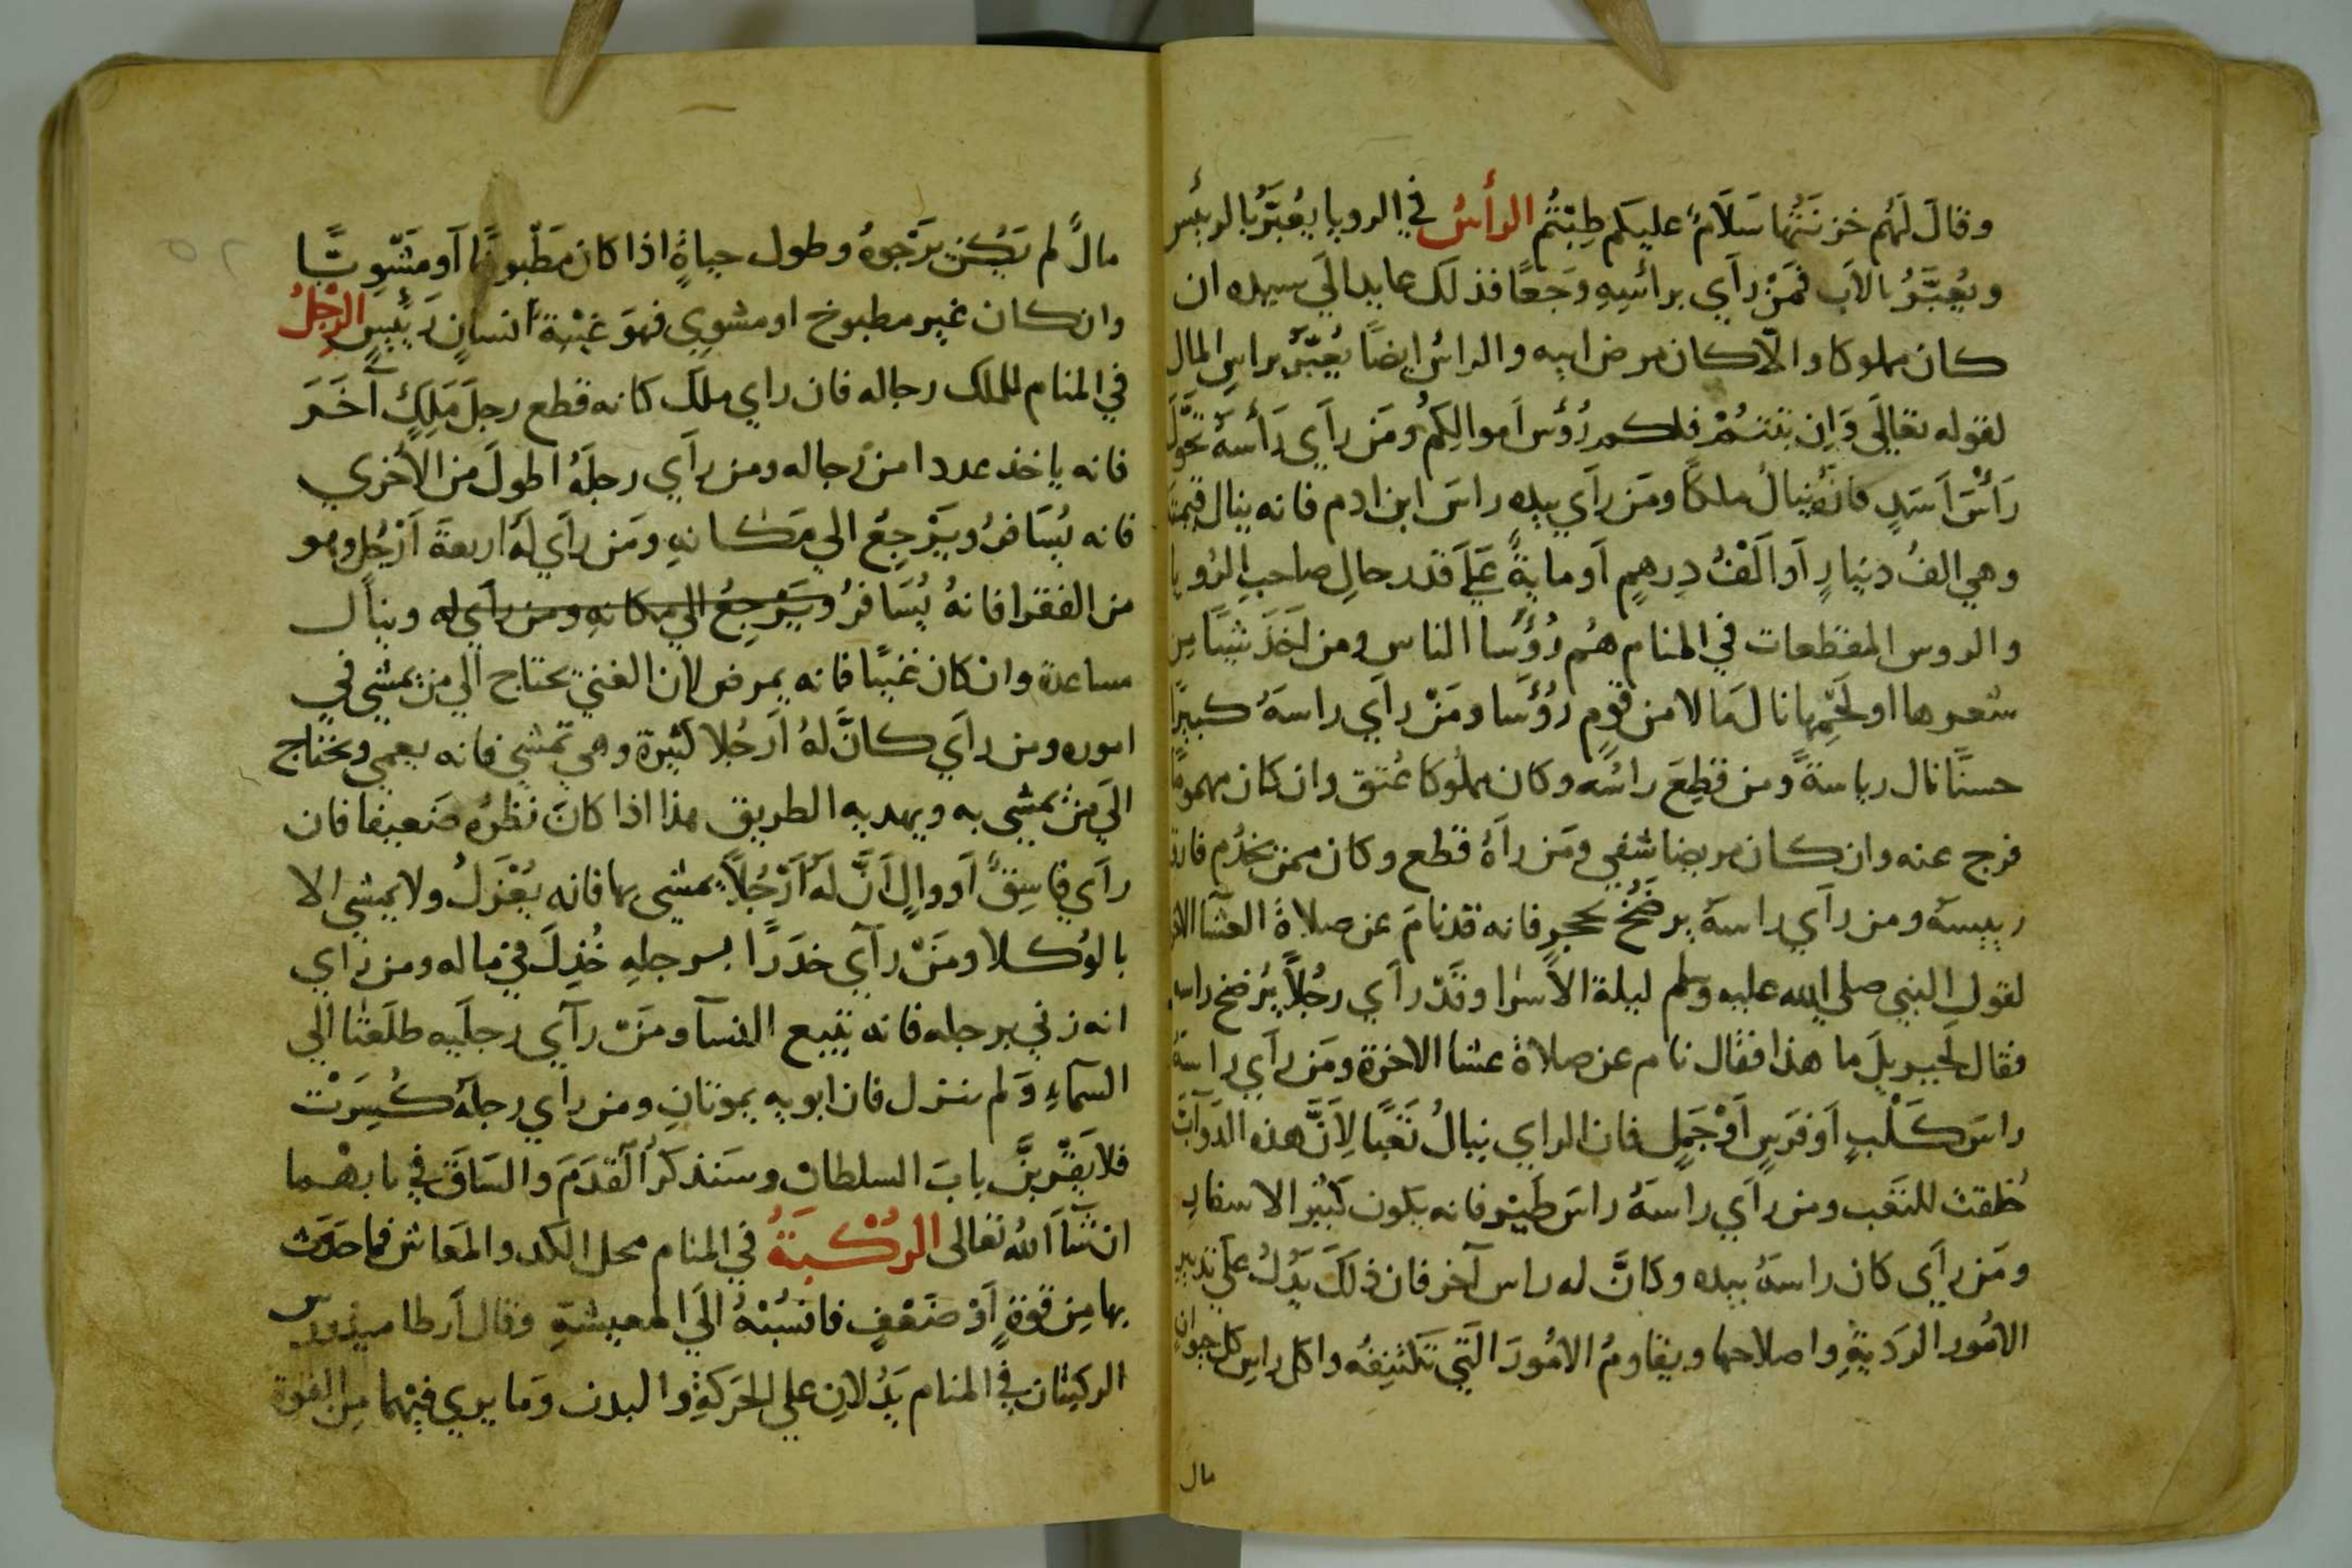 وقالَ لَهُم خزنَتُها سَلَامٌ عليكم طِبْتُم الرأسُ في الرويا يُعَبَّرُ بالرئيس
ويُعَبَّرُ بالاَب فمَنْ رأَي برائسِهِ وَجَعًا فذلك عايد اليَ سيده ان
كان مملوكا والّا كان مرض ابيه والرائس ايضًا يُعَبَّرُ براسِ المال
لقوله تعاليَ وَاِن تبتُمْ فلكم رُؤُسُ اَموالِكُمْ ومَن رأَي رَأْسَهُ تَحَوَّلَ
رَأْسَ اَسَدٍ فانهُ ينالُ ملكًا ومَن رأَي بيده راسَ ابن ادم فانه ينال قيمته
وهي الفُ دنيارٍ أَو اَلفُ دِرهمٍ أَو مايةً عَليَ قدر حالِ صاحبِ الرُويا
والروس المقطعات في المنام هُم رُؤَسا الناس ومن اَخَذَ شيئًا مِن
شعرها او لحَمِها نالَ مَالا من قومٍ رُؤَسا ومَنْ رأَي راسَهُ كبيرًا
حسنًا نال رياسةً ومن قطِعَ راسُه وكان مملُوكا عُتق وان كان مهمومًا
فرج عنه وان كان مريضا شفي ومَن رآهُ قطع وكان ممن يخدُم فارق
رييسهَ ومن رأَي راسهُ يرضَخُ بحجرٍ فانه قد نامَ عن صلاةَ العشا الاخرة
لقول النبي صلي الله عليه وسلم ليلة الاَسرا وقَدْ رأَي رجُلاً يُرضخ راسه
فقال لجبريلَ ما هذا فقال نام عن صلاة عشا الاخرة ومَن رأَي راسهُ
راسَ كَلْبٍ أَو فَرَسٍ أَوْ جَمَلٍ فان الراي ينالُ تَعَبًا لِاَنَّ هذه الدَوآبَّ
خُلقت للتعَب ومن رأَي راسَهُ راسَ طَيْرٍ فانه يكون كَثيْرَ الاسفارِ
ومَن رأَي كان راسهُ بيده وكانَّ له راس آخر فان ذلكَ يَدُلُ علي تدبير
الاُمُور الرَديةِ واصلاحها ويقاومُ الاُمُورَ التَي تكتنِفُه واكل راسِ كل حيوان
مال
مالٌ لم يَكُن يَرْجوهُ وطول حياةٍ اذا كان مَطْبوخًا أَو مَشْوِيًّا
وان كان غير مطبوخ او مشوي فهوَ غيْبة انسانٍ رَئيسٍ الرِجلُ
في المنام للملك رجاله فان راي ملك كانه قطع رجلَ مَلِكٍ آخَرَ
فانه ياخذ عددا من رجاله ومن رأَي رجلَهُ اطولَ من الاُخري
فانه يُسَافرُ ويَرْجِعُ الي مَكانهِ ومَن رأَي لَهُ اربعةَ اَرْجُلٍ وهو
من الفقرا فانهُ يُسَافرُ ويَرْجِعُ الي مكانهِ ومن رأَي له وينال
مساعدة وان كان غنيًا فانه يمرض لان الغنيَ يحتاج الي من يمشي في
اموره ومن رأَي كانَّ لهُ اَرجُلا كثيرة وهي تمشي فانه يعمي ويحتاج
اليَ من يمشي به ويهديه الطريق هذا اذا كانَ نظرُه ضَعيفا فان
رأَي فاسِقً أَو والٍ اَنَّ لهُ اَرْجُلاً يمشي بها فانه يُعْزَلُ ولا يمشي الا
بالوُكلا ومَنْ رآَي خدَرًا برجلهِ خُذِلَ في ماله ومن رأي
انه زني برجله فانه يتبع النسآ ومَنْ رآَي رجلَيه طلعَتا الي
السمآءِ وَلم تنزل فان ابويه يموتانِ ومن رأَي رجلهُ كُسِرَتْ
فلا يَقْرَبنَّ بابَ السلطان وسَنذكرُ القدَمَ والسَاقَ في بابهْما
ان شآَ اَللهُ تعالى الرُكْبَةُ في المنام محل الكد والمَعَاش فما حدَث
بها مِن قوةٍ أَوْ ضَعْفٍ فانسُبْهُ اليَ المعيشةِ وقال اَرطاميدورس
الركبتان في المنام يَدُلانِ علي الحرَكةِ والبدن وَما يري فيْهما مِن القوة